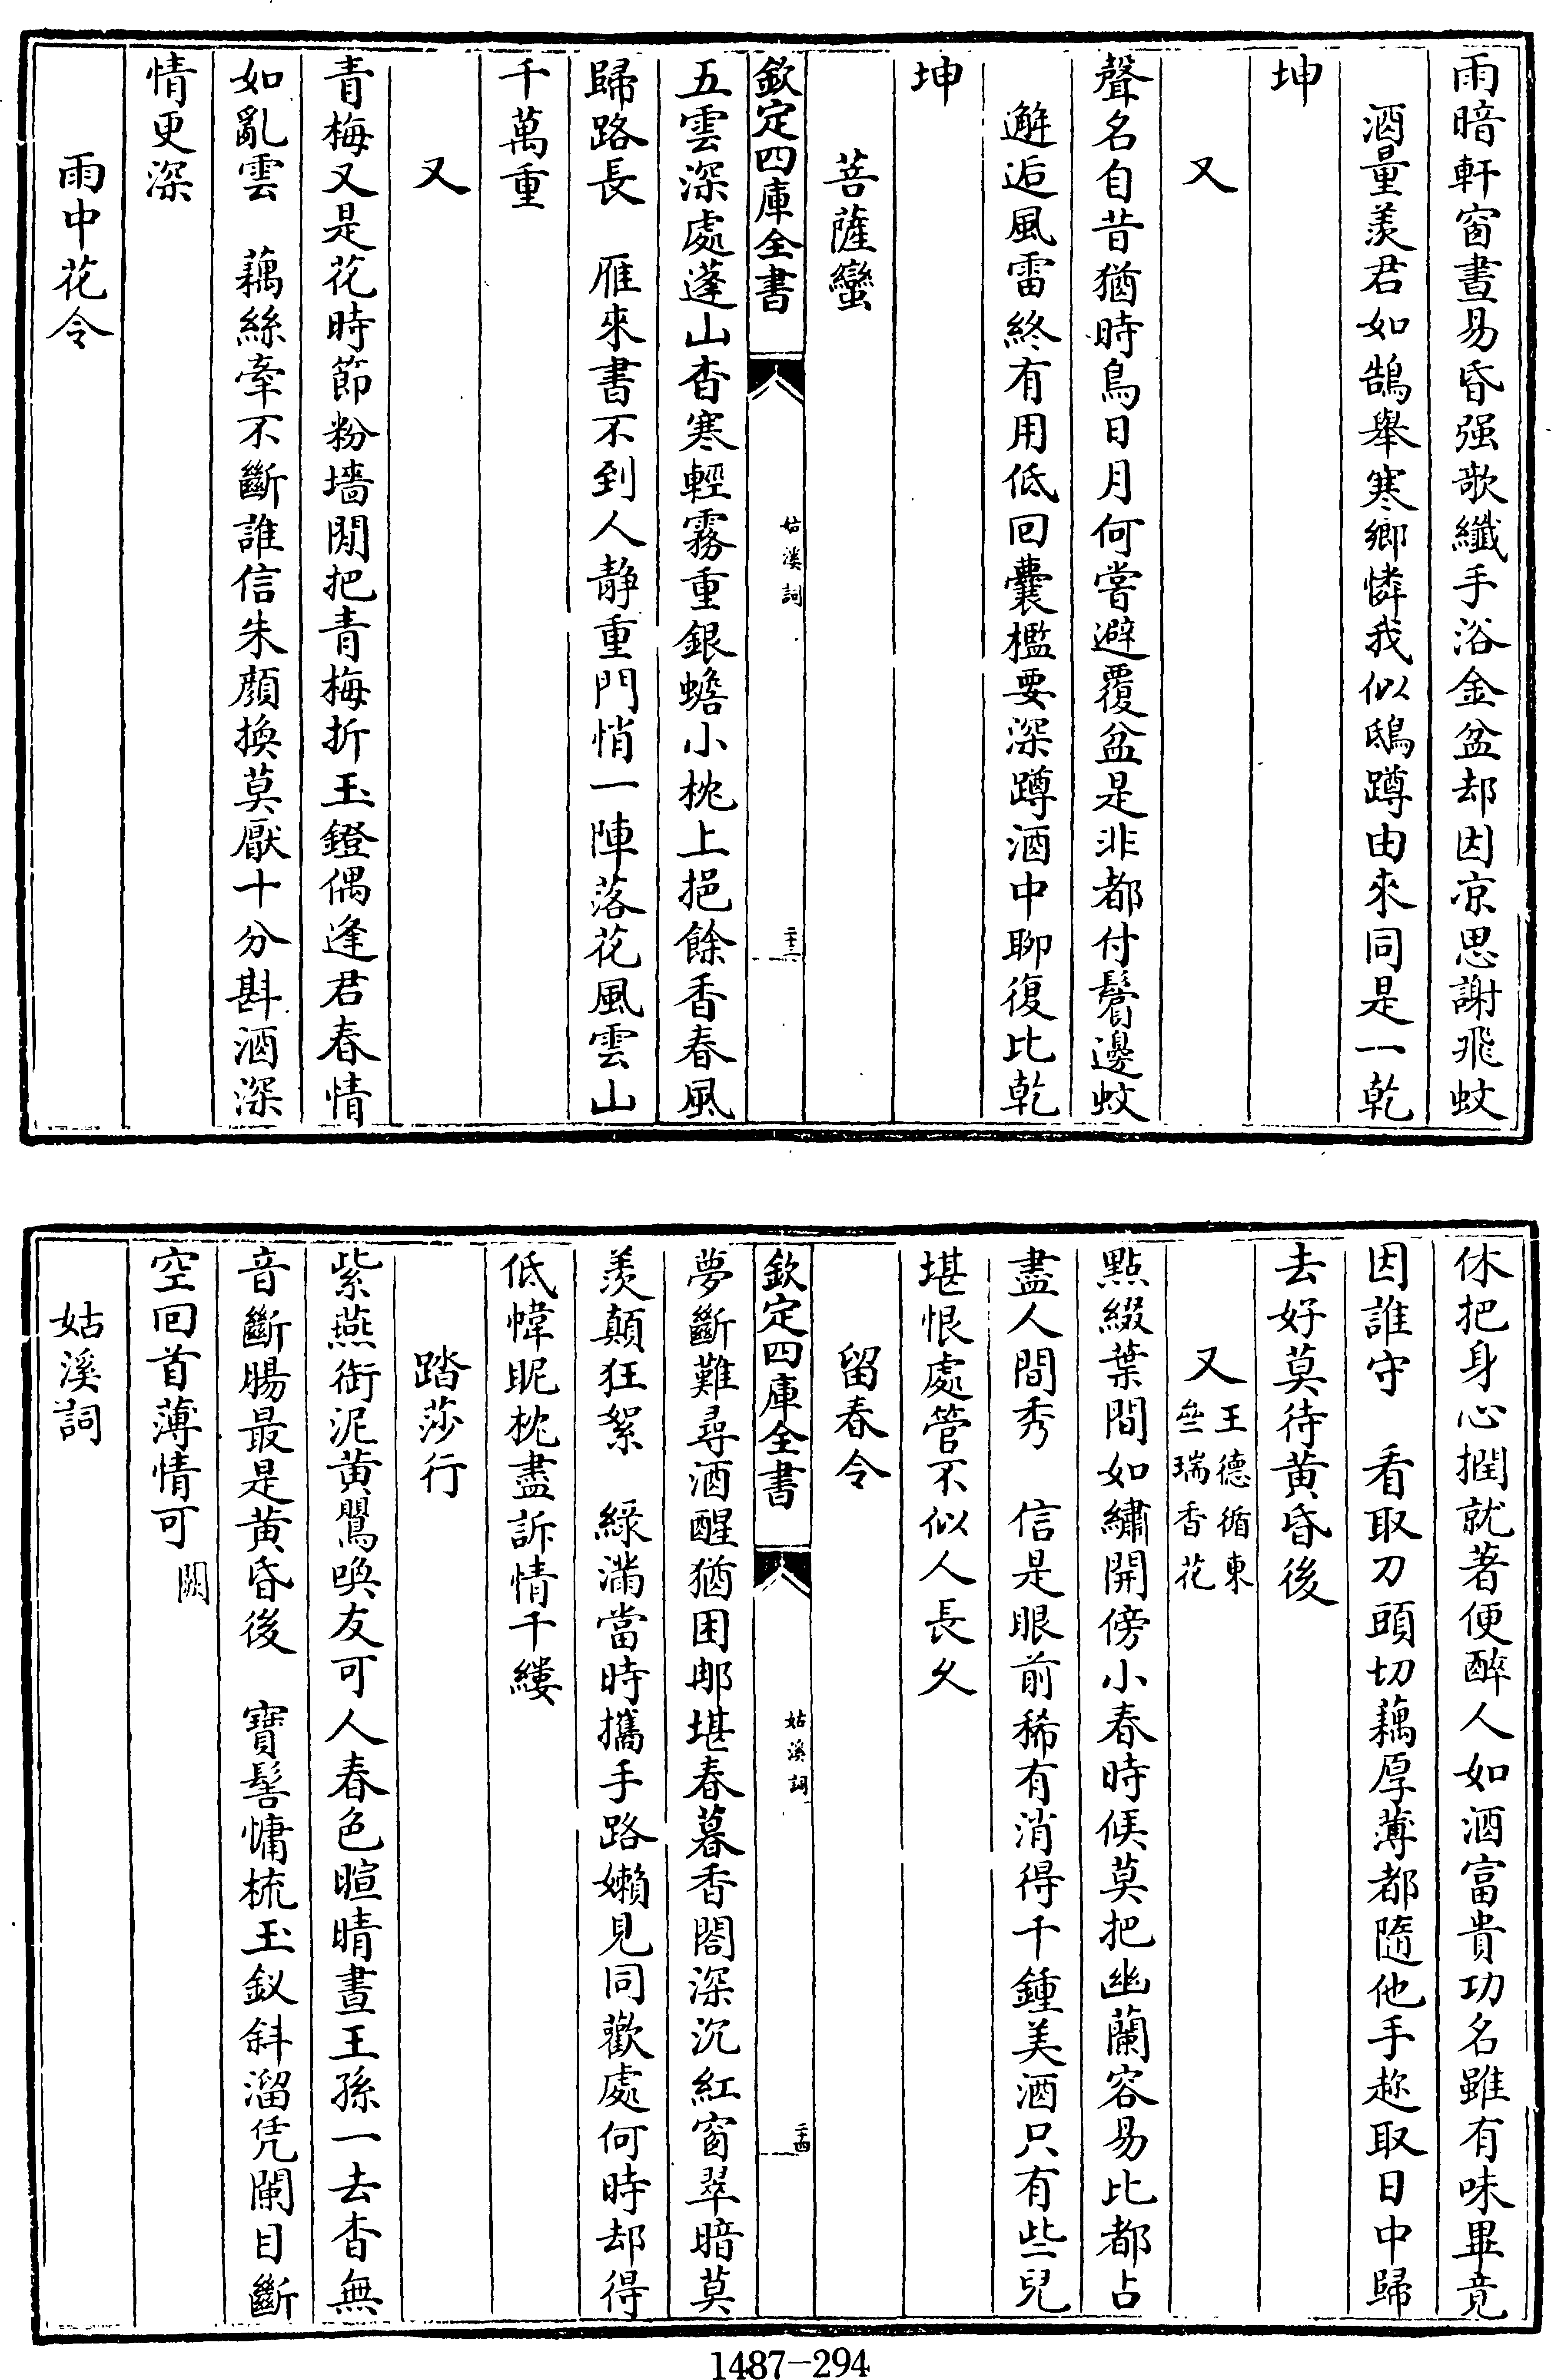 雨暗軒窗晝易昏强歌纖手浴金盆却因凉思謝飛蚊
酒量羨君如鵠舉寒鄉憐我似鴟蹲由來同是一乾
坤
又
聲名自昔猶時鳥日月何嘗避覆盆是非都付鬢邊蚊
邂逅風雷終有用低回囊檻要深蹲酒中聊復比乾
坤
菩薩蠻
欽定四庫全書
姑溪詞
二十三
五雲深處蓬山杳寒輕霧重銀蟾小枕上挹餘香春風
歸路長　雁來書不到人靜重門悄一陣落花風雲山
千萬重
又
青梅又是花時節粉墻閒把青梅折玉鐙偶逢君春情
如亂雲　藕絲牽不斷誰信朱顏換莫厭十分斟酒深
情更深
雨中花令
休把身心撋就著便醉人如酒富貴功名雖有味畢竟
因誰守　看取刀頭切藕厚薄都隨他手趂取日中歸
去好莫待黃昏後
又王德循東
壘瑞香花
點綴葉間如繡開傍小春時候莫把幽蘭容易比都占
盡人間秀　信是眼前稀有消得千鍾美酒只有些兒
堪恨處管不似人長久
留春令
欽定四庫全書
姑溪詞
二十四
夢斷難尋酒醒猶困那堪春暮香閣深沉紅窗翠暗莫
羨顛狂絮　綠滿當時攜手路嬾見同歡處何時却得
低幃昵枕盡訴情千縷
踏莎行
紫燕銜泥黃鸎喚友可人春色暄晴晝王孫一去杳無
音斷腸最是黃昏後　寶髻慵梳玉釵斜溜凭闌目斷
空回首薄情可闕
姑溪詞
1487-294